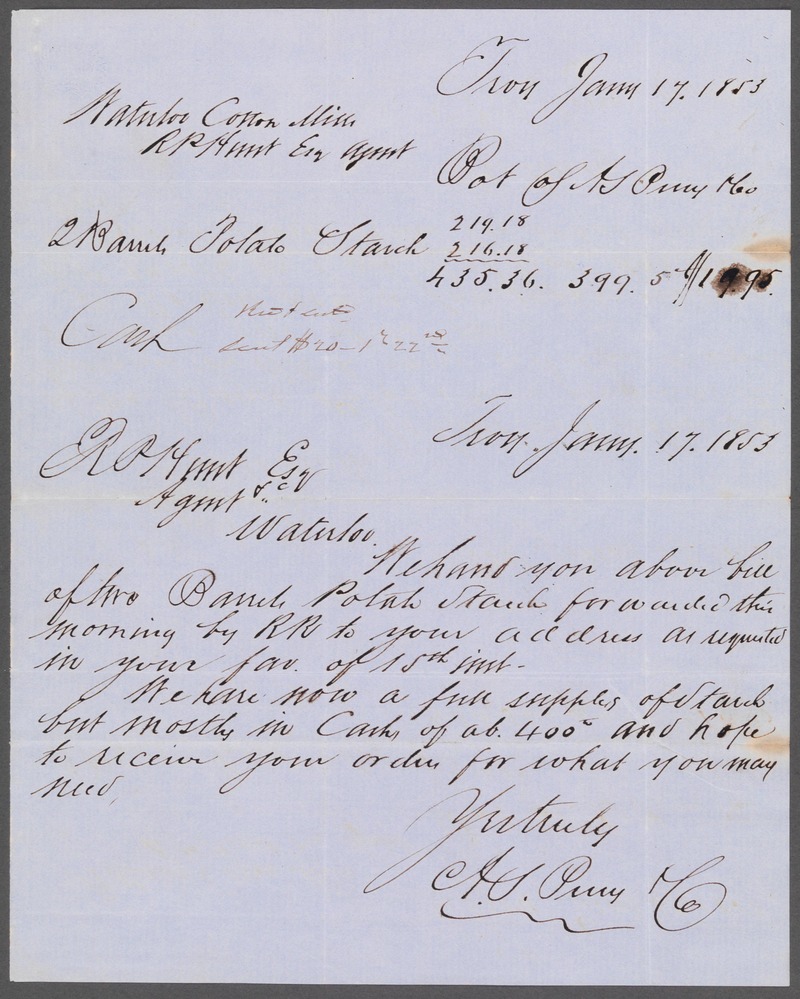 Troy Jany 17. 1853
Waterloo Cotton Mills
R P Hunt Esq Agent
Bot of A S Perry & Co
2 Barrels Potato Starch
219.18
216.18
435.36. 399. 5 $19.95.
Cash
sent $20 - 1 22nd
Troy. Jany. 17. 1853
R P Hunt Esq
Agent &c
Waterloo.
We hand you above bill
of two Barrels Potato Starch forwarded this
morning by RR to your address as requested
in your fav. of 15th inst -
We have now a full supply of Starch
but mostly in Casks of ab. 400s and hope
to receive your orders for what you may
need,
Yrs truly
A. S. Perry & Co